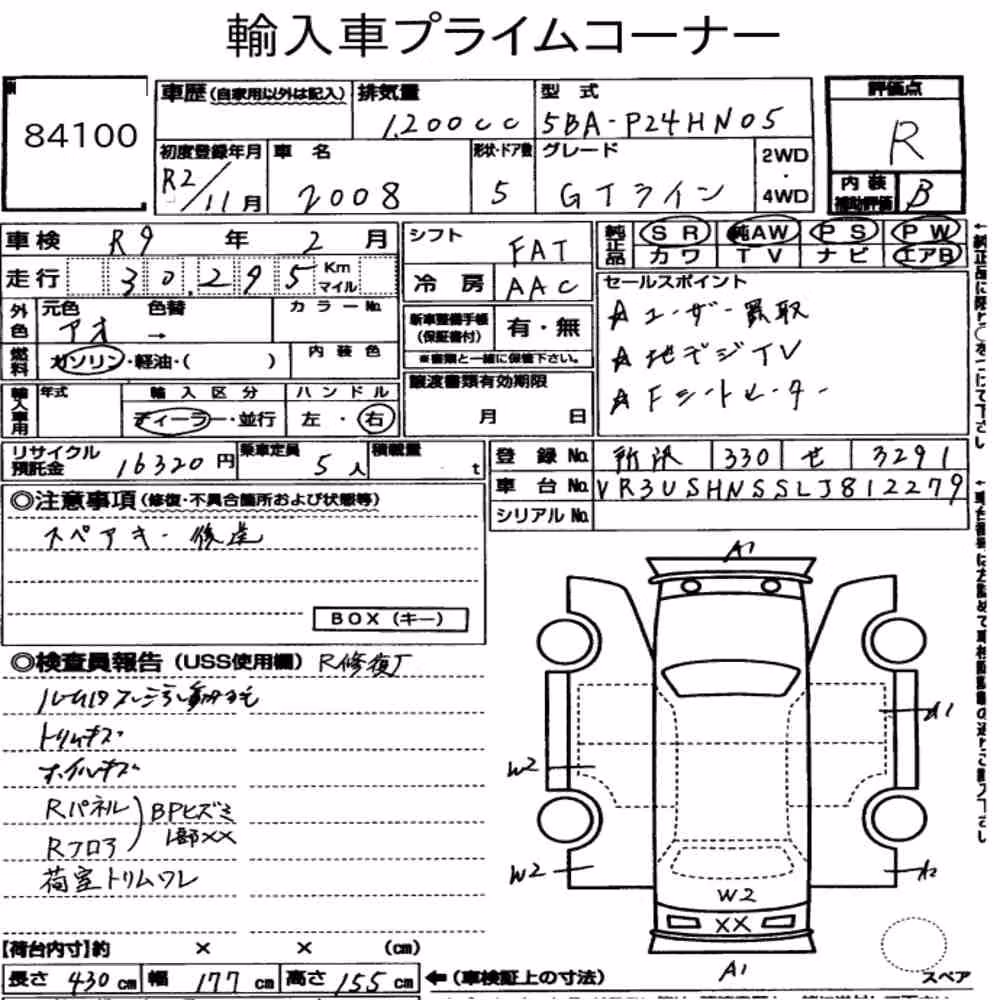 輸入車プライムコーナー
84100
車歴(自家用以外は記入) 排気量 1,200cc
型式 5BA-P24HN05
評価点 R
初度登録年月 R2/11月
車名 2008
形状・ドア数 5
グレード GTライン
2WD
・
4WD
内装補助評価 B
車検 R9年 2月
シフト FAT
純正品 SR 純AW PS PW
カワ TV ナビ エアB
走行 30,295 Km マイル
冷房 AAC
セールスポイント
☆ユーザー買取
☆地デジTV
☆Fシートヒーター
外色 元色 アオ → 色替
カラーNo.
新車整備手帳(保証書付) 有・無
※書類と一緒に保管下さい。
燃料 ガソリン・軽油・( )
内装色
譲渡書類有効期限
月 日
輸入車用 年式
輸入区分 ディーラー・並行
ハンドル 左・右
リサイクル預託金 16320円
乗車定員 5人
積載量 t
登録No. 所沢 330 せ 3291
車台No. VR3USHNSSLJ812279
シリアルNo.
◎注意事項(修復・不具合箇所および状態等)
スペアキー後送
BOX(キー)
◎検査員報告(USS使用欄) R修復了
トリムキズ
ホイルキズ
Rパネル
Rフロア
BPヒズミ
1部××
荷室トリムワレ
A1
A1
W2
W2
A2
W2
XX
A1
スペア
【荷台内寸】約 × × (cm)
長さ 430cm 幅 177cm 高さ 155cm ←(車検証上の寸法)